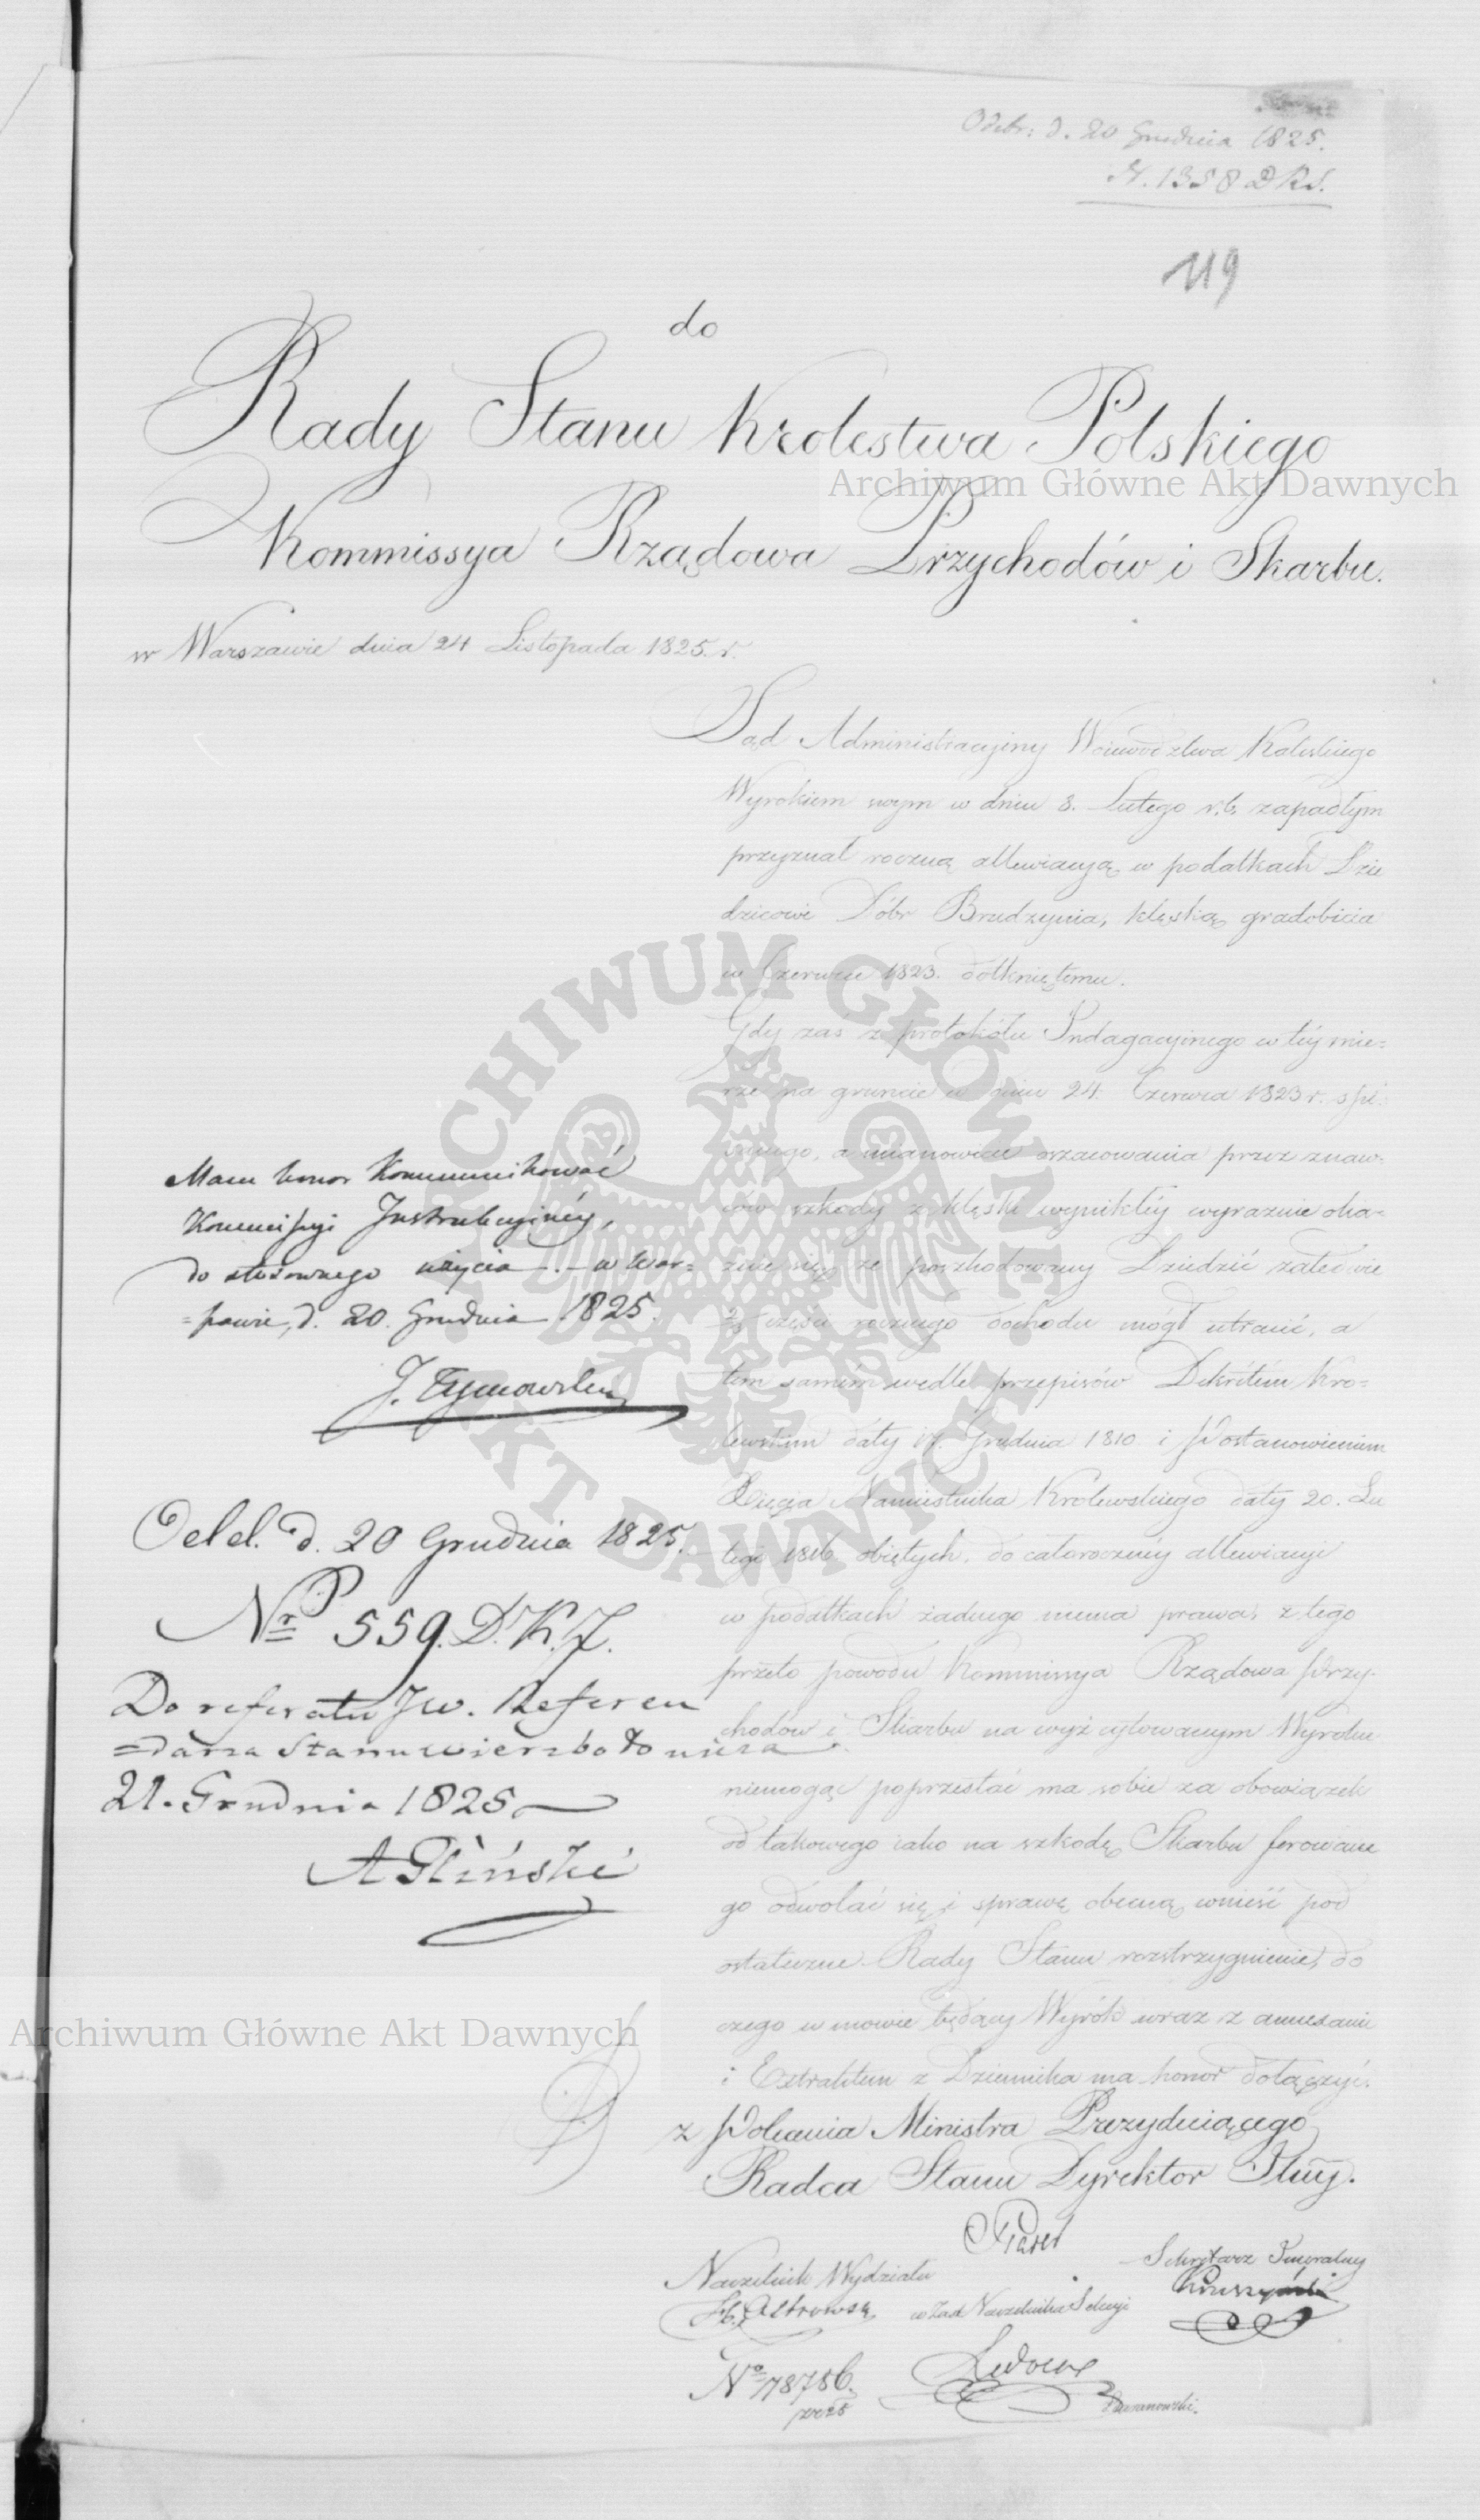 Odebr: d. 20 Grudnia 1825.
N. 1358 D R S.
119
do
Rady Stanu Krolestwa Polskiego
Archiwum Główne Akt Dawnych
Kommissya Rządowa Przychodów i Skarbu.
w Warszawie dnia 24 Listopada 1825. r.
Sąd Administracyiny Woiewodztwa Kaliskiego
Wyrokiem swym w dniu 8. Lutego r. b. zapadłym
przyznał roczną allewiacyją w podatkach Dzie
dzicowi Dóbr Brudzynia, klęską gradobicia
w Czerwcu 1823. dotkniętemu.
Gdy zaś z protokółu Indagacyinego w téy mie=
rze na gruncie w dniu 24. Czerwca 1823 r. spi
sanego, a mianowicie oszacowania przez znaw=
ców szkody z klęski wynikłéy wyraznie oka=
zuie się, że poszkodowany Dziedzic zaledwie
części rocznego dochodu mógł utracić, a
tem samém wedle przepisów Dekretém Kro=
lewskim daty 17. Grudnia 1810 i Postanowieniem
Xięcia Namiestnika Królewskiego daty 20. Lu
tego 1816 obiętych, do całorocznéy allewiacyi
w podatkach żadnego niema prawa, z tego
przeto powodu Kommissya Rządowa Przy=
chodów i Skarbu na wyż cytowanym Wyroku
niemogąc poprzestać ma sobie za obowiązek
od takowego iako na szkodę Skarbu ferowane
go odwołać się i sprawę obecną wnieść pod
ostateczne Rady Stanu rozstrzygnienie, do
czego w mowie będący Wyrók wraz z annexami
i Extraktem z Dziennika ma honor dołączyć.
z Polecenia Ministra Prezyduiącego
Radca Stanu Dyrektor Jlny.
Mam honor Kommunikować
Kommissyi Instrukcyinéy,
do stosownego użycia. — w War=
=szawie, d. 20. Grudnia 1825.
J. Tymowski
Odel. d. 20 Grudnia 1825.
Nr 559. D. K. J.
Do referatu JW. Referen
=darza Stanu Wierzbołowicza
21. Grudnia 1825
A Gliński
Archiwum Główne Akt Dawnych
Naczelnik Wydziału
Ostrowski
w Zast Naczelnika Sekcyi
Sekretarz Jeneralny
No 78786.
ARCHIWUM GŁÓWNE AKT DAWNYCH